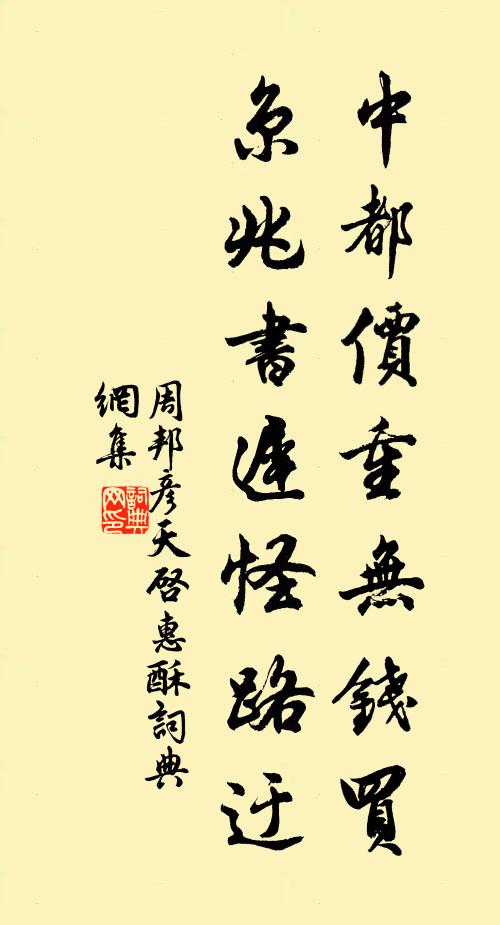 中都價重無錢買
京兆書遲怪路迂
周邦彦天啓惠酥詞典
網集
詞典网印